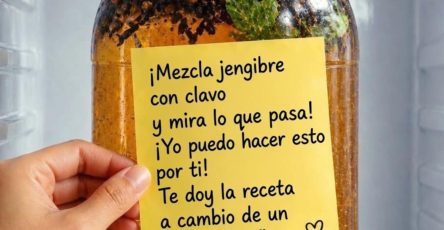 ¡Mezcla jengibre
con clavo
y mira lo que pasa!
¡Yo puedo hacer esto
por ti!
Te doy la receta
a cambio de un